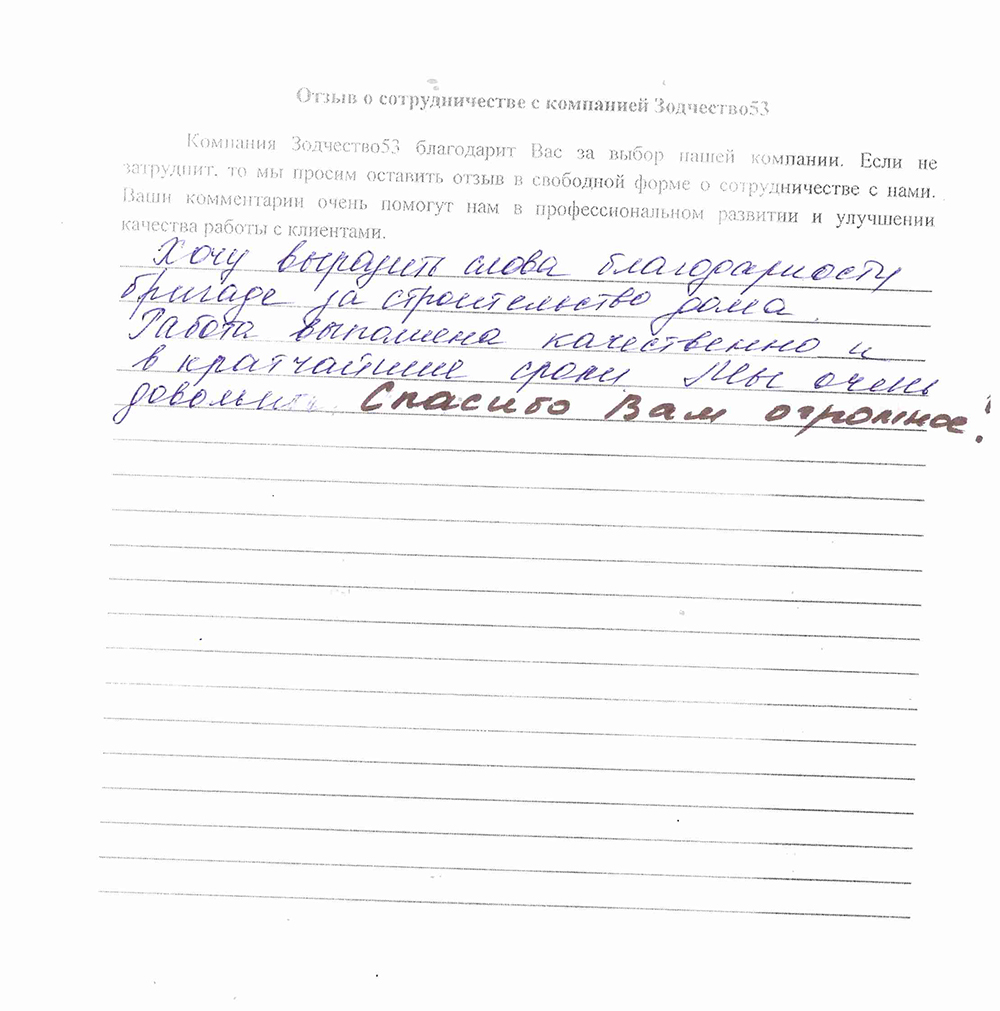 Отзыв о сотрудничестве с компанией Зодчество53
Компания Зодчество53 благодарит Вас за выбор нашей компании. Если не
затруднит, то мы просим оставить отзыв в свободной форме о сотрудничестве с нами.
Ваши комментарии очень помогут нам в профессиональном развитии и улучшении
качества работы с клиентами.
Хочу выразить слова благодарности
бригаде за строительство дома.
Работа выполнена качественно и
в кратчайшие сроки Мы очень
довольны. Спасибо Вам огромное!